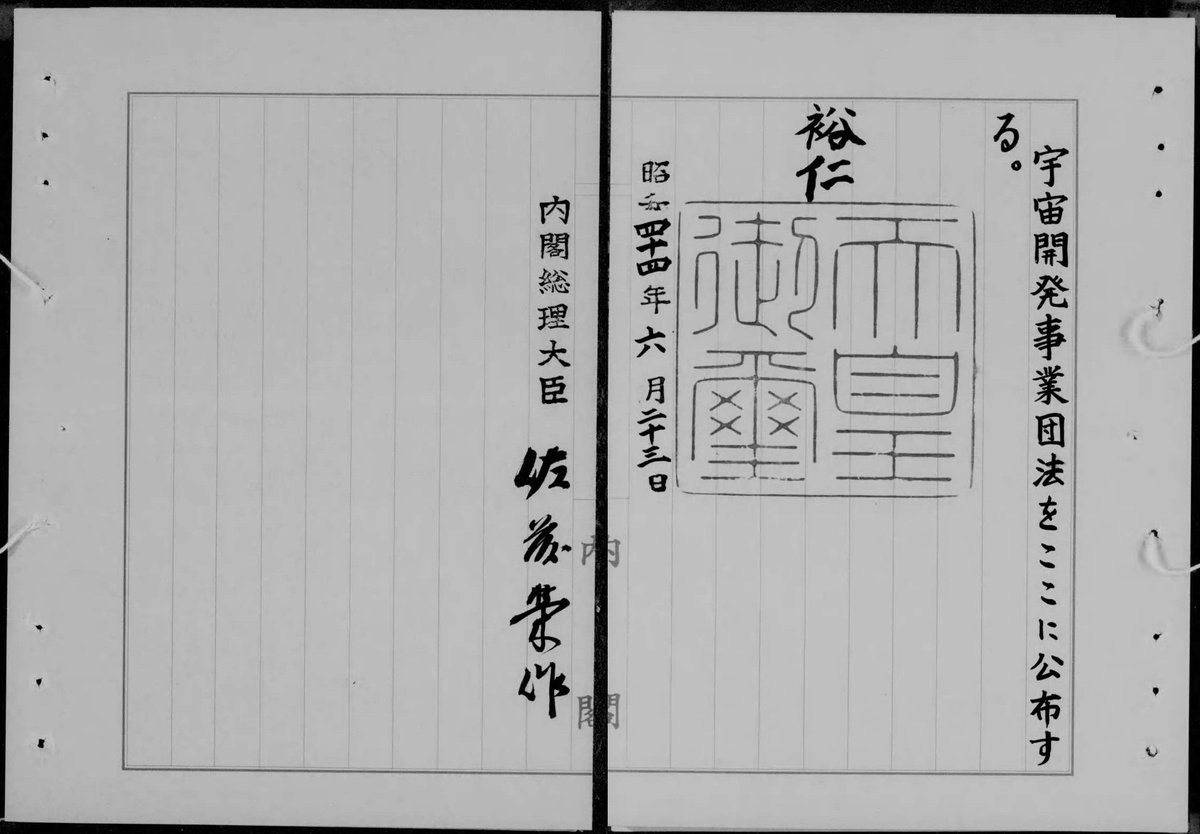 宇宙開発事業団法をここに公布す
る。
裕仁
天皇
御璽
昭和四十四年六月二十三日
内閣
内閣総理大臣 佐藤榮作